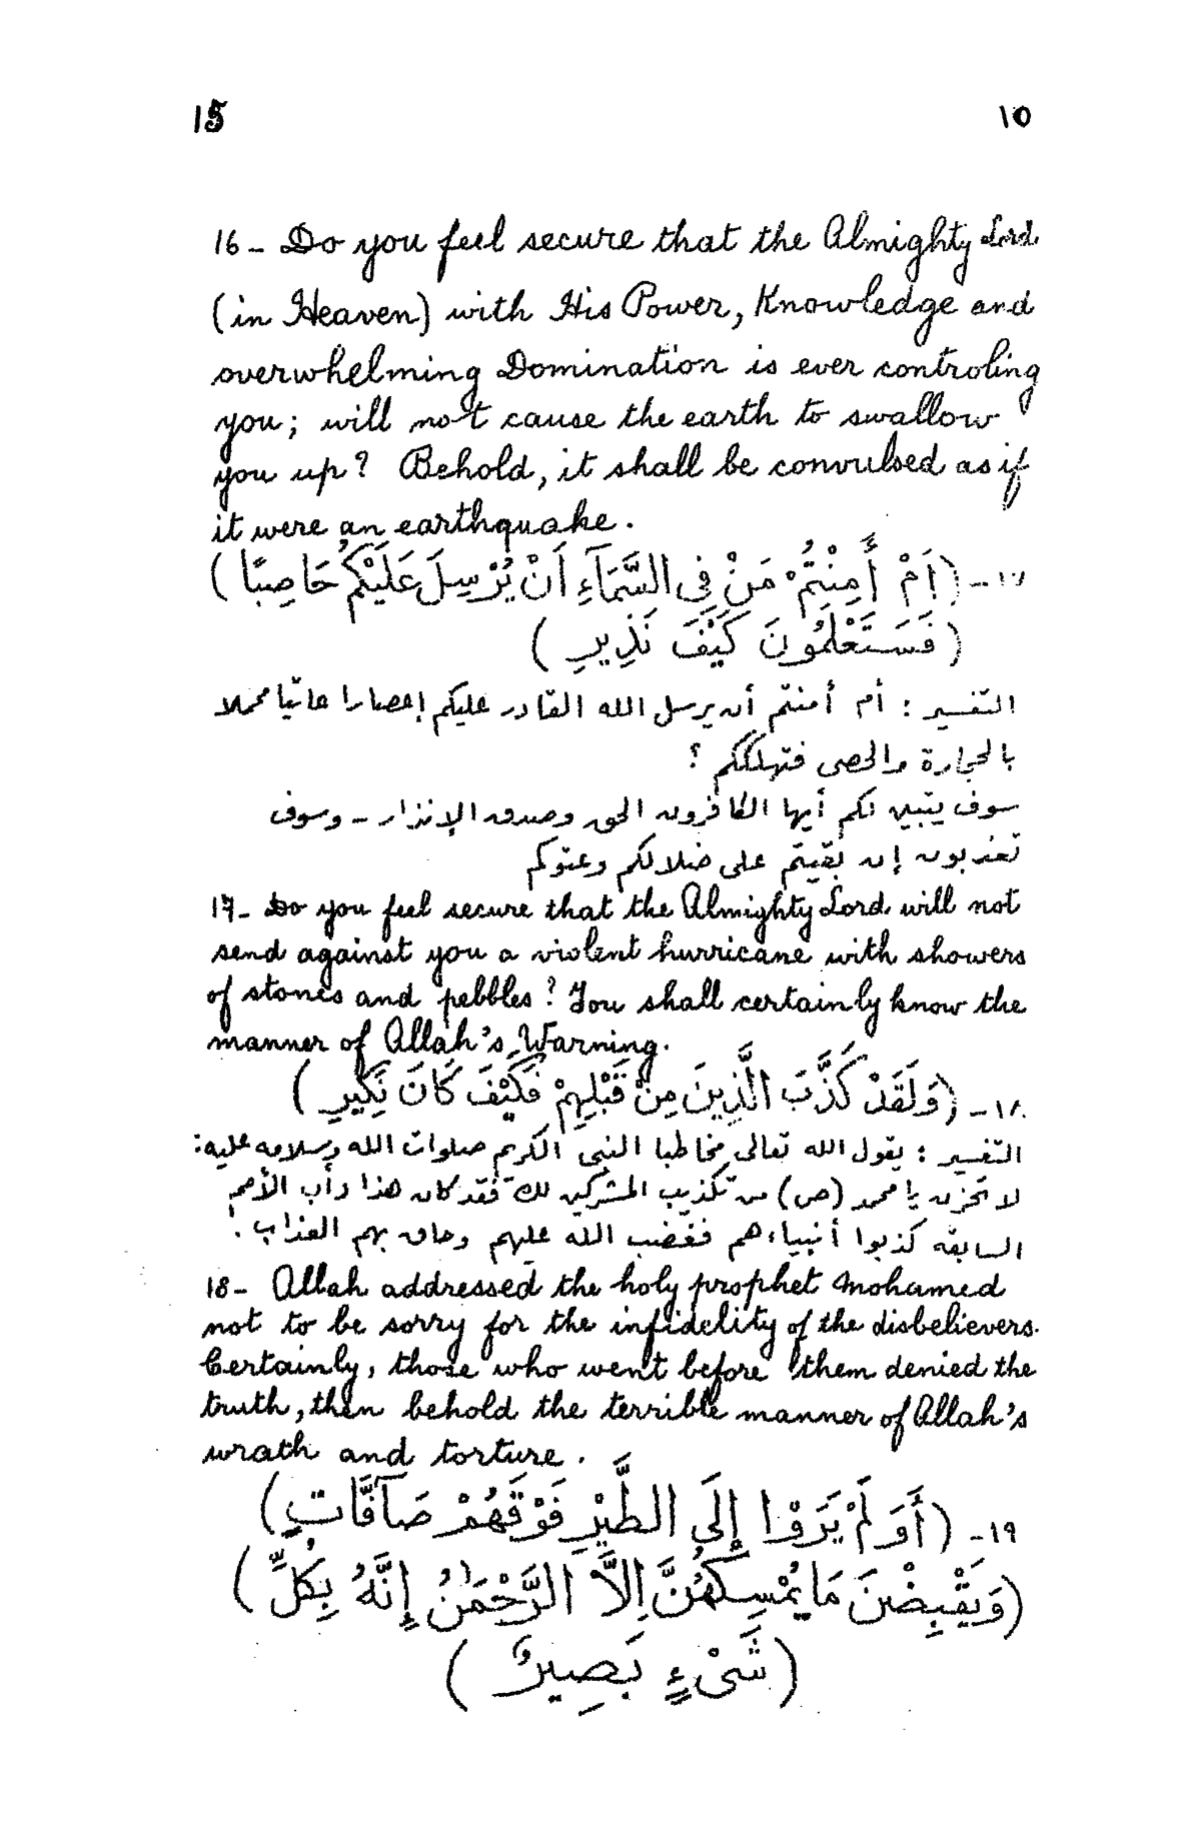 15 ١٥
16 - Do you feel secure that the Almighty Lord
(in Heaven) with His Power, Knowledge and
overwhelming Domination is ever controling
you; will not cause the earth to swallow
you up? Behold, it shall be convulsed as if
it were an earthquake.
١٧ - (اَمْ أَمِنْتُمْ مَنْ فِى السَّمَآءِ اَنْ يُرْسِلَ عَلَيْكُمْ حَاصِبًا)
(فَسَتَعْلَمُونَ كَيْفَ نَذِيرِ)
التفسير : أم أمنتم أن يرسل الله القادر عليكم إعصارا عاتيا محملا
بالحجارة والحصى فتهلككم ؟
سوف يتبين لكم أيها الكافرون الحق وصدق الإنذار - وسوف
تعذبون إن بقيتم على ضلالكم وعتوكم
17 - Do you feel secure that the Almighty Lord will not
send against you a violent hurricane with showers
of stones and pebbles? You shall certainly know the
manner of Allah's Warning.
١٨ - (وَلَقَدْ كَذَّبَ الَّذِينَ مِنْ قَبْلِهِمْ فَكَيْفَ كَانَ نَكِيرِ)
التفسير : يقول الله تعالى مخاطبا النبى الكريم صلوات الله وسلامه عليه:
لا تحزن يا محمد (ص) من تكذيب المشركين لك فقد كان هذا دأب الأمم
السابقة كذبوا أنبياءهم فغضب الله عليهم وحاق بهم العذاب !
18 - Allah addressed the holy prophet Mohamed
not to be sorry for the infidelity of the disbelievers.
Certainly, those who went before them denied the
truth, then behold the terrible manner of Allah's
wrath and torture.
١٩ - (أَوَ لَمْ يَرَوْا إِلَى الطَّيْرِ فَوْقَهُمْ صَآفَّاتٍ)
(وَيَقْبِضْنَ مَا يُمْسِكُهُنَّ اِلاَّ الرَّحْمٰنُ إِنَّهُ بِكُلِّ)
(شَىْءٍ بَصِيرٌ)